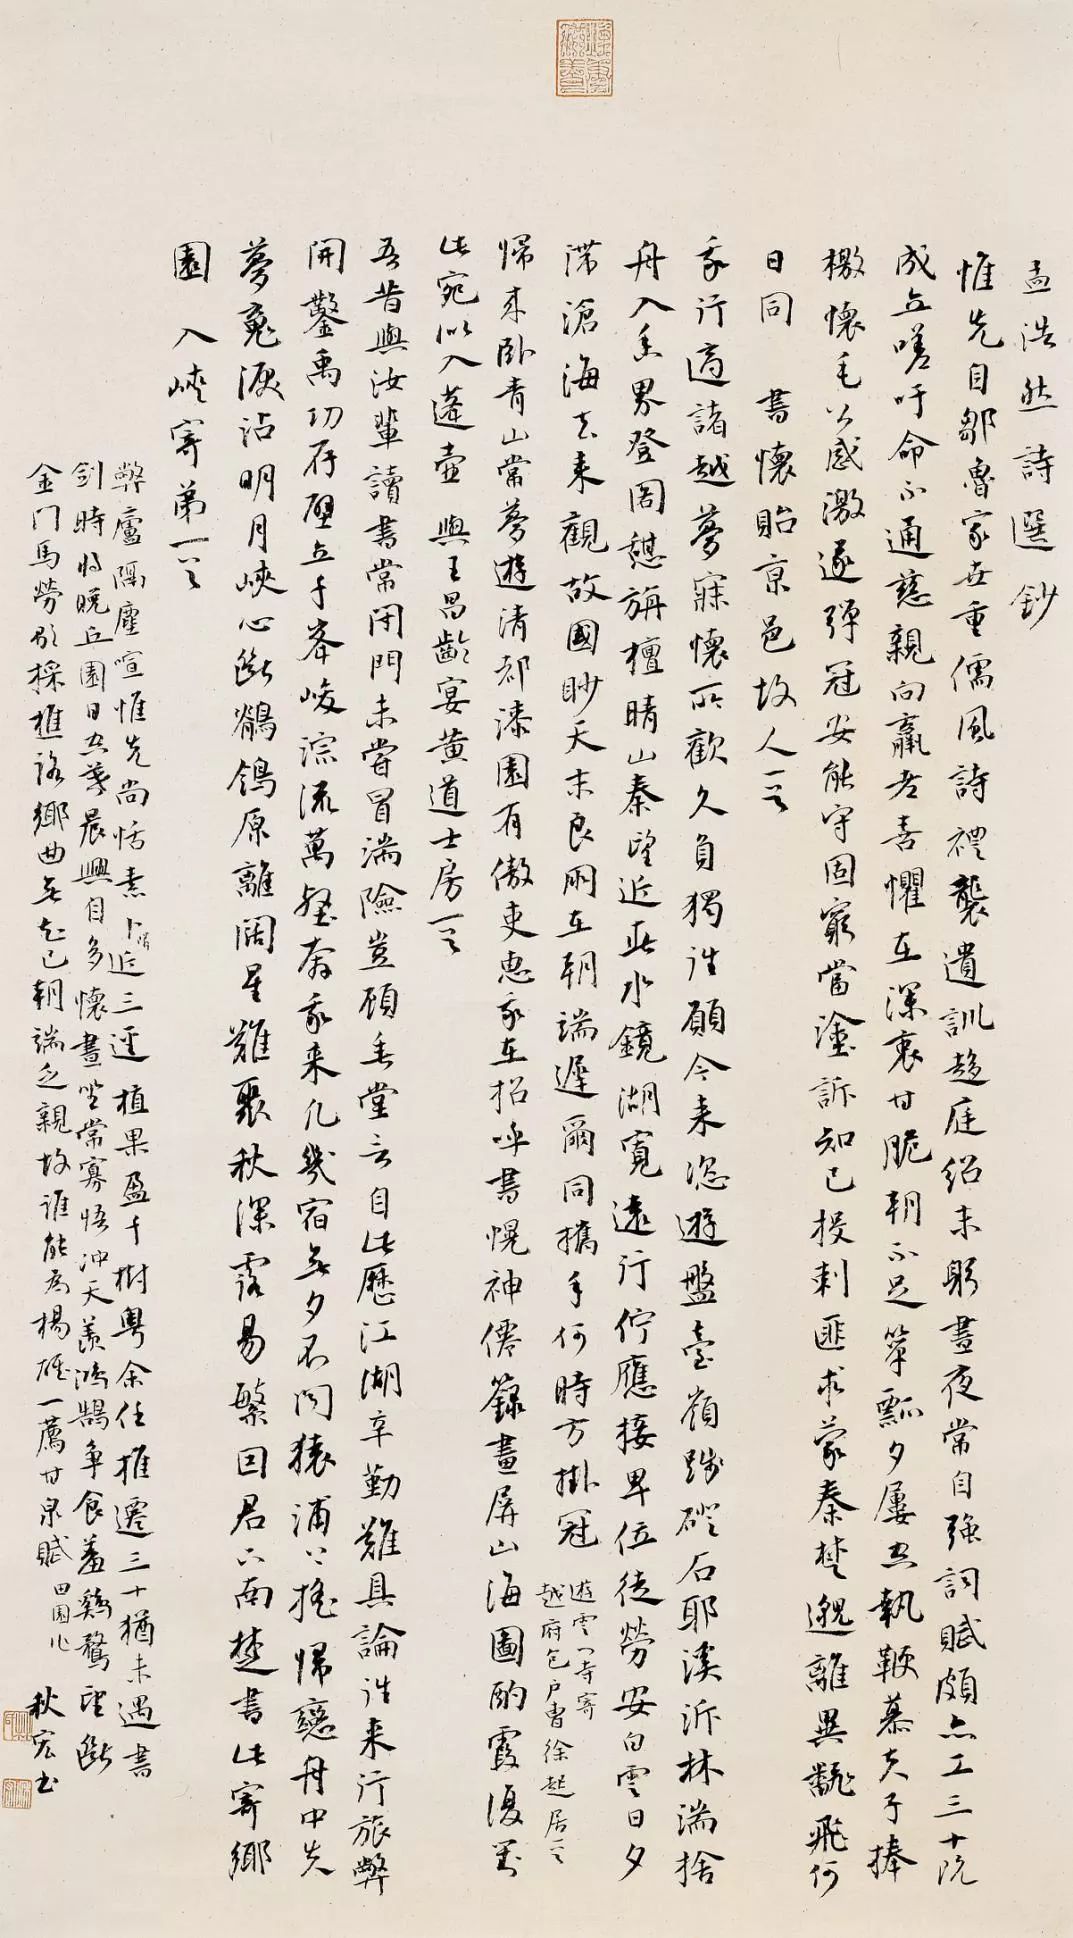 孟浩然詩選鈔
惟先自鄒魯家世重儒風詩禮襲遺訓趨庭紹末躬晝夜常自強詞賦頗亦工三十既
成立嗟吁命不通慈親向羸老喜懼在深衷甘脆朝不足簞瓢夕屢空執鞭慕夫子捧
檄懷毛公感激遂彈冠安能守固窮當塗訴知己投刺匪求蒙秦楚邈離異翻飛何
日同 書懷貽京邑故人一首
我行適諸越夢寐懷所歡久負獨往願今來恣遊盤臺嶺踐磴石耶溪泝林湍捨
舟入香界登閣憩旃檀晴山秦望近春水鏡湖寬遠行佇應接卑位徒勞安白雲日夕
滯滄海去來觀故國眇天末良朋在朝端遲爾同攜手何時方掛冠 遊雲門寺寄
越府包戶曹徐起居一首
歸來卧青山常夢遊清都漆園有傲吏惠我在招呼書幌神僊籙畫屏山海圖酌霞復對
此宛似入蓬壺 與王昌齡宴黃道士房一首
吾昔與汝輩讀書常閉門未嘗冒湍險豈顧垂堂言自此歷江湖辛勤難具論往來行旅弊
開鑿禹功存壁立千峯峻淙流萬壑奔我來凡幾宿無夕不聞猿浦上搖歸戀舟中失
夢魂淚沾明月峽心斷鶺鴒原離闊星難聚秋深露易繁因君下南楚書此寄鄉
園 入峽寄弟一首
弊廬隔塵喧惟先尚恬素卜鄰近三逕植果盈千樹粵余任推遷三十猶未遇書
劍時將晚丘園日空暮晨興自多懷晝坐常寡悟沖天羨鴻鵠爭食羞雞鶩望斷
金門馬勞歌採樵路鄉曲無知己朝端乏親故誰能為楊雄一薦甘泉賦 田園作 秋宏書